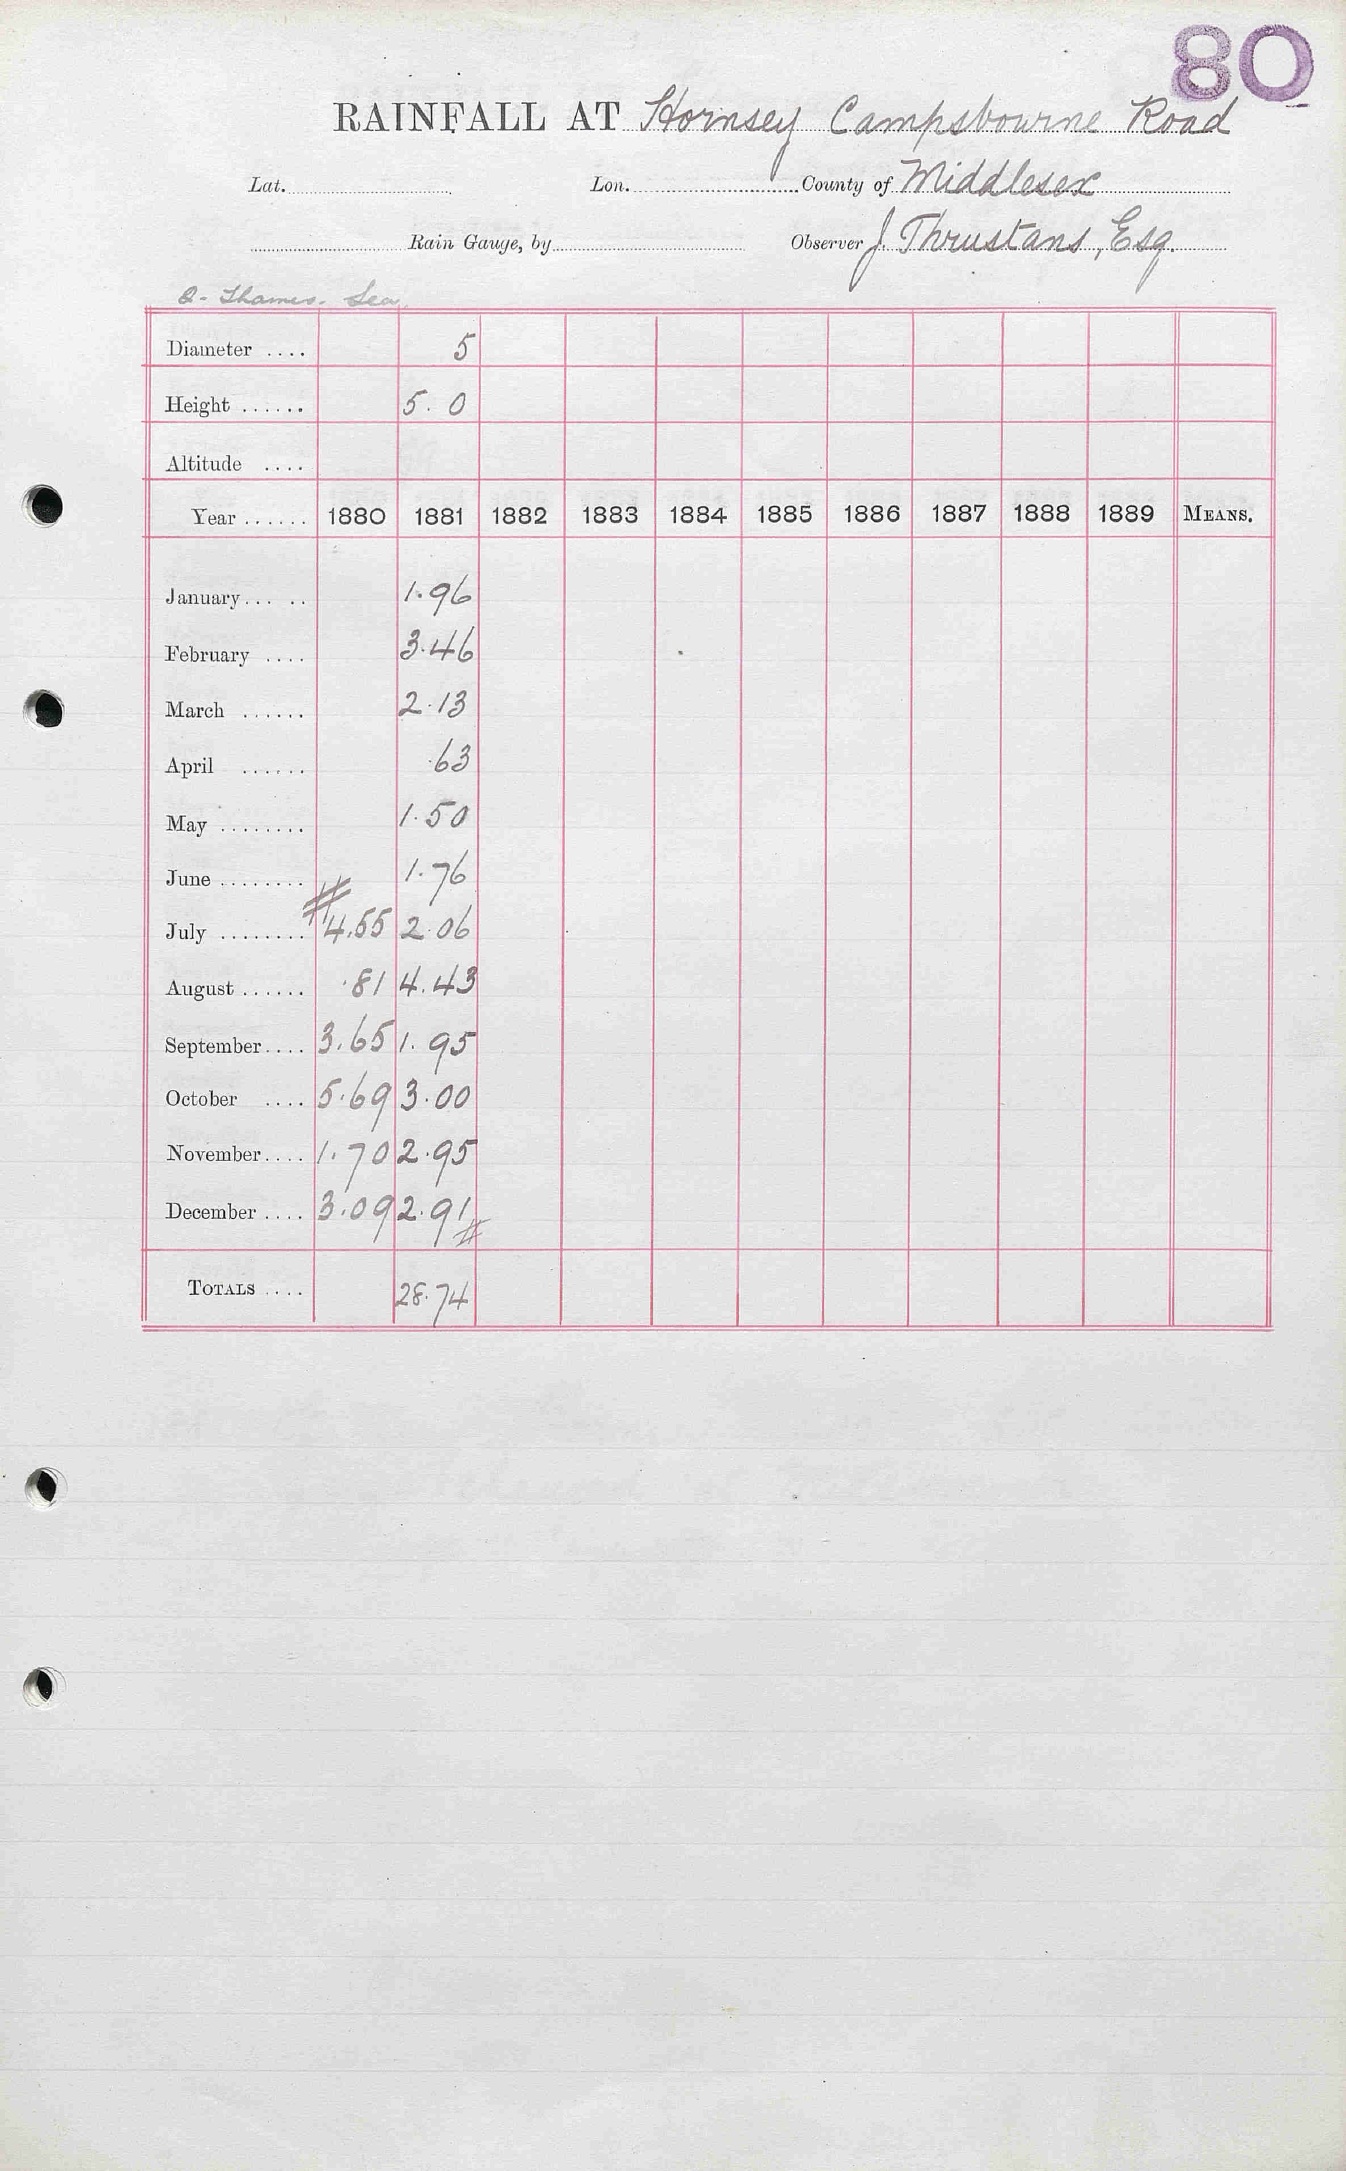 80
RAINFALL AT Hornsey Campsbourne Road
Lat. Lon. County of Middlesex
Rain Gauge, by Observer J. Thrustans, Esq.
Thames
Diameter .... 5
Height ...... 5. 0
Altitude ....
Year ...... 1880 1881 1882 1883 1884 1885 1886 1887 1888 1889 MEANS.
January ... .. 1.96
February .... 3.46
March ...... 2.13
April ...... .63
May ........ 1.50
June ........ 1.76
July ........ # 4.55 2.06
August ...... .81 4.43
September .... 3.65 1.95
October .... 5.69 3.00
November .... 1.70 2.95
December .... 3.09 2.91 #
TOTALS .... 28.74